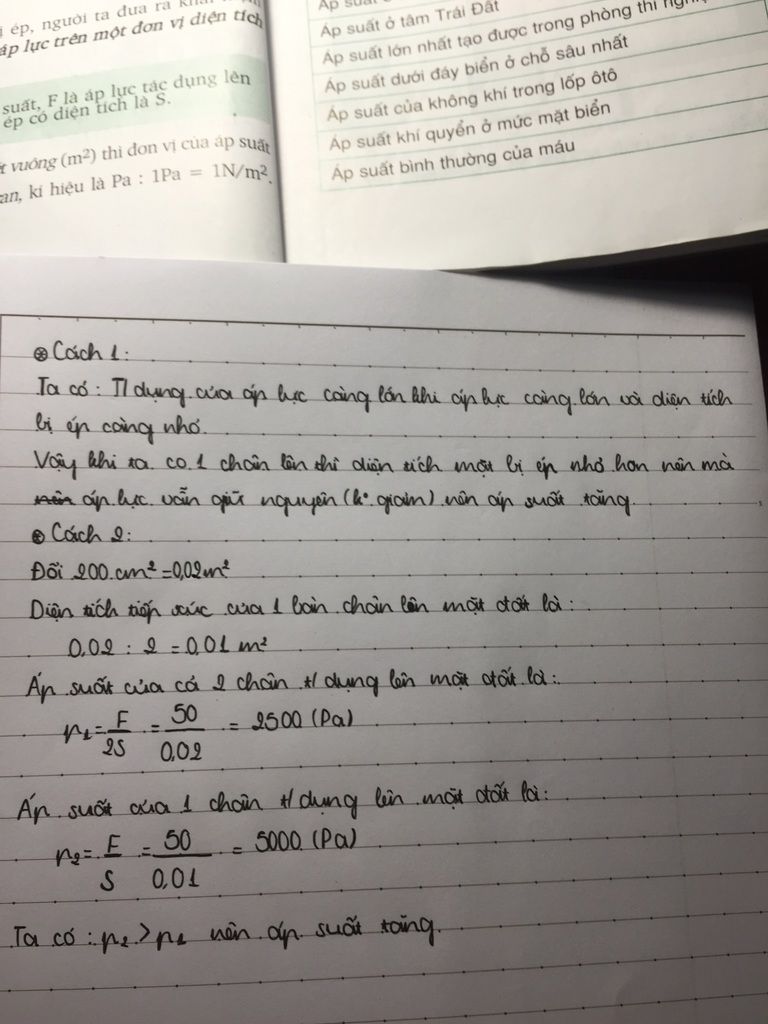 ị ép, người ta đưa ra
áp lực trên một đơn vị diện tích
suất, F là áp lực tác dụng lên
ép có diện tích là S.
vuông (m²) thì đơn vị của áp suất
an, kí hiệu là Pa : 1Pa = 1N/m².
Áp suất ở tâm Trái Đất
Áp suất lớn nhất tạo được trong phòng thí
Áp suất dưới đáy biển ở chỗ sâu nhất
Áp suất của không khí trong lốp ôtô
Áp suất khí quyển ở mức mặt biển
Áp suất bình thường của máu
⊛ Cách 1:
Ta có: T/dụng của áp lực càng lớn khi áp lực càng lớn và diện tích
bị ép càng nhỏ.
Vậy khi ta co 1 chân lên thì diện tích mặt bị ép nhỏ hơn nên mà
nên áp lực vẫn giữ nguyên (k° giảm) nên áp suất tăng.
⊛ Cách 2:
Đổi 200 cm² = 0,02m²
Diện tích tiếp xúc của 1 bàn chân lên mặt đất là:
0,02 : 2 = 0,01 m²
Áp suất của cả 2 chân t/dụng lên mặt đất là:
p₁ = F/2S = 50/0,02 = 2500 (Pa)
Áp suất của 1 chân t/dụng lên mặt đất là:
p₂ = F/S = 50/0,01 = 5000 (Pa)
Ta có: p₂ > p₁ nên áp suất tăng.